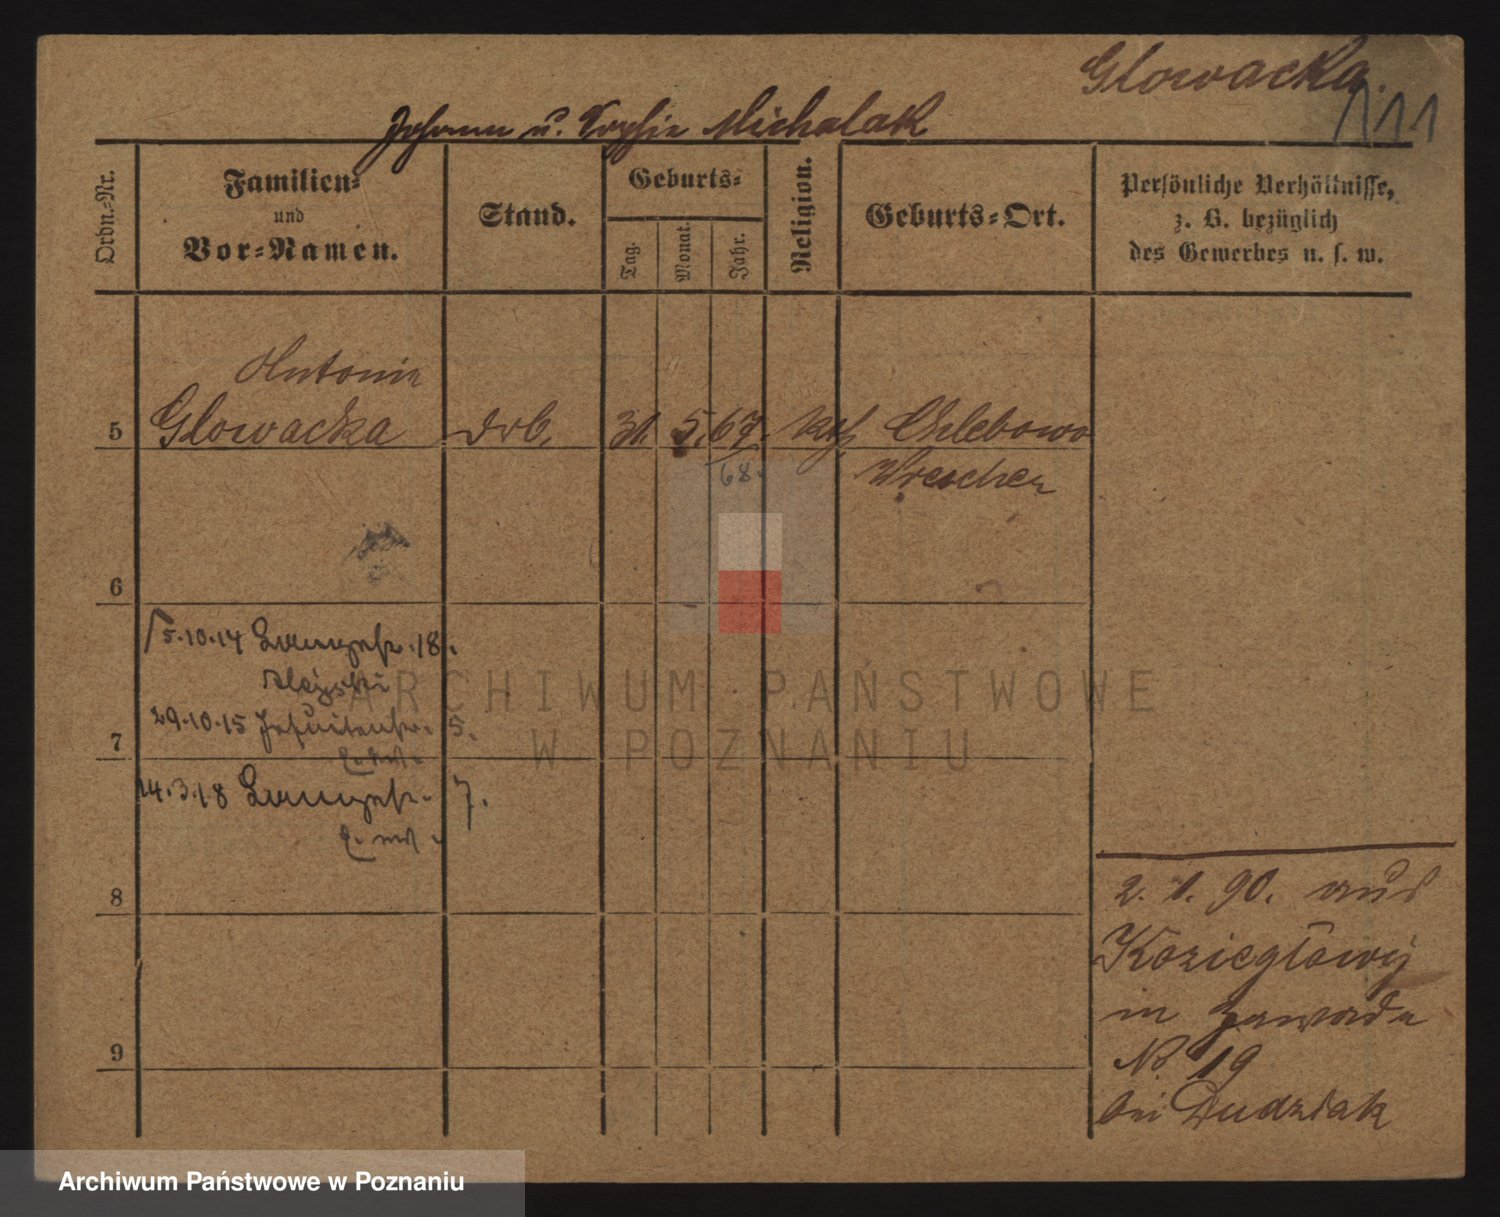 Glowacka.
111
Johann u. Sophie Michalak
Ordn.-Nr.
Familien-
und
Vor-Namen.
Stand.
Geburts-
Tag.
Monat.
Jahr.
Religion.
Geburts-Ort.
Persönliche Verhältnisse,
z. B. bezüglich
des Gewerbes u. s. w.
Antonie
5 Glowacka 31 5. 67. kath Chlebowo
68. Wreschen
6
5.10.14 Langestr. 18.
29.10.15 Jesuitenstr. 5.
7
14.3.18 Langestr. 7.
8
9
2. 1. 90. aus
Koziegłowy
in Zawade
No 19
bei Dudziak
ARCHIWUM PAŃSTWOWE
W POZNANIU
Archiwum Państwowe w Poznaniu